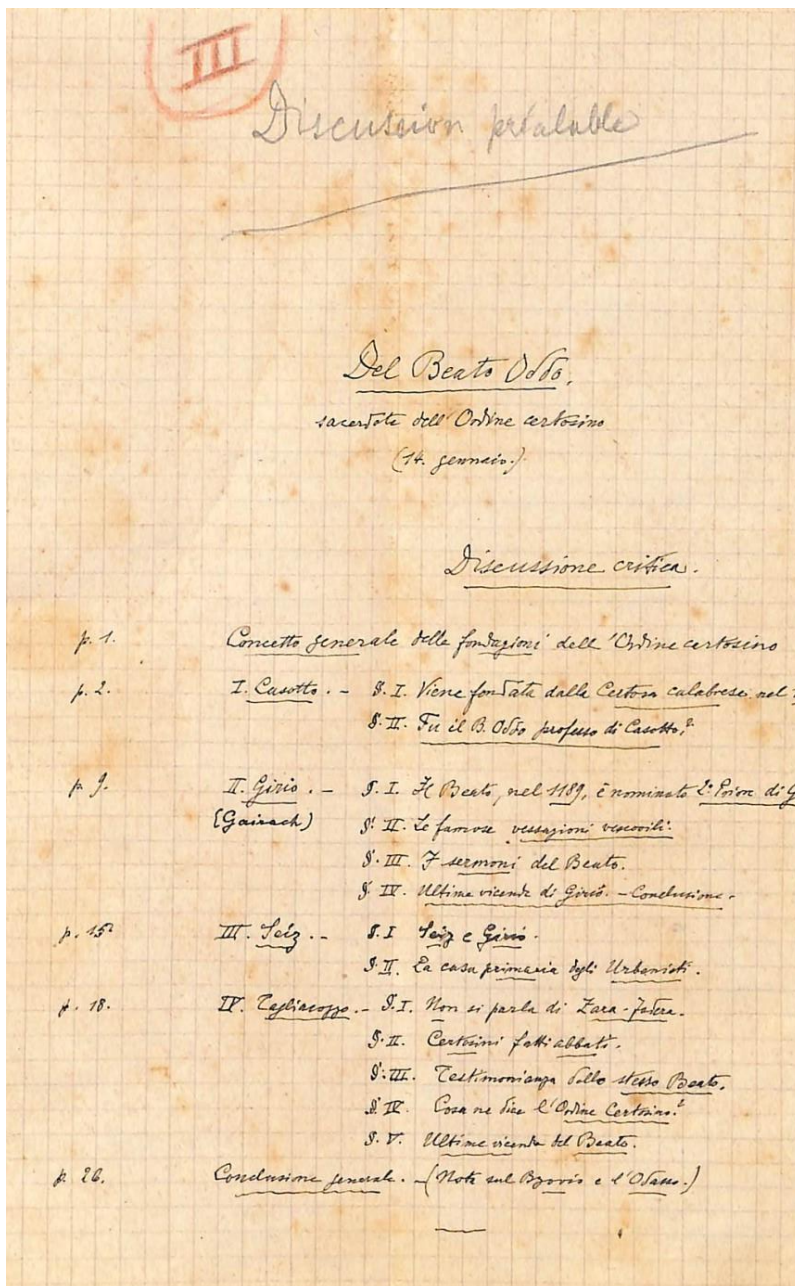 III
Discussion préalable
Del Beato Oddo,
sacerdote dell'Ordine certosino
(14. gennaio.)
Discussione critica.
p. 1. Concetto generale delle fondazioni dell'Ordine certosino
p. 2. I. Casotto. – §. I. Viene fondata dalla Certosa calabrese nel
§. II. Fu il B. Oddo professo di Casotto?
p. 9. II. Girio. – §. I. Il Beato, nel 1189, è nominato 2º Priore di G
(Gairach) §. II. Le famose vessazioni vescovili.
§. III. I sermoni del Beato.
§. IV. Ultime vicende di Girio. – Conclusione.
p. 15 III. Seiz. – §. I Seiz e Girio.
§. II. La casa primaria degli Urbanisti.
p. 18. IV. Tagliacozzo. – §. I. Non si parla di Zara-Jadera.
§. II. Certosini fatti abbati.
§. III. Testimonianza dello stesso Beato.
§. IV. Cosa ne dice l'Ordine Certosino?
§. V. Ultime vicende del Beato.
p. 26. Conclusione generale. – (Note sul Bzovio e l'Odasso.)